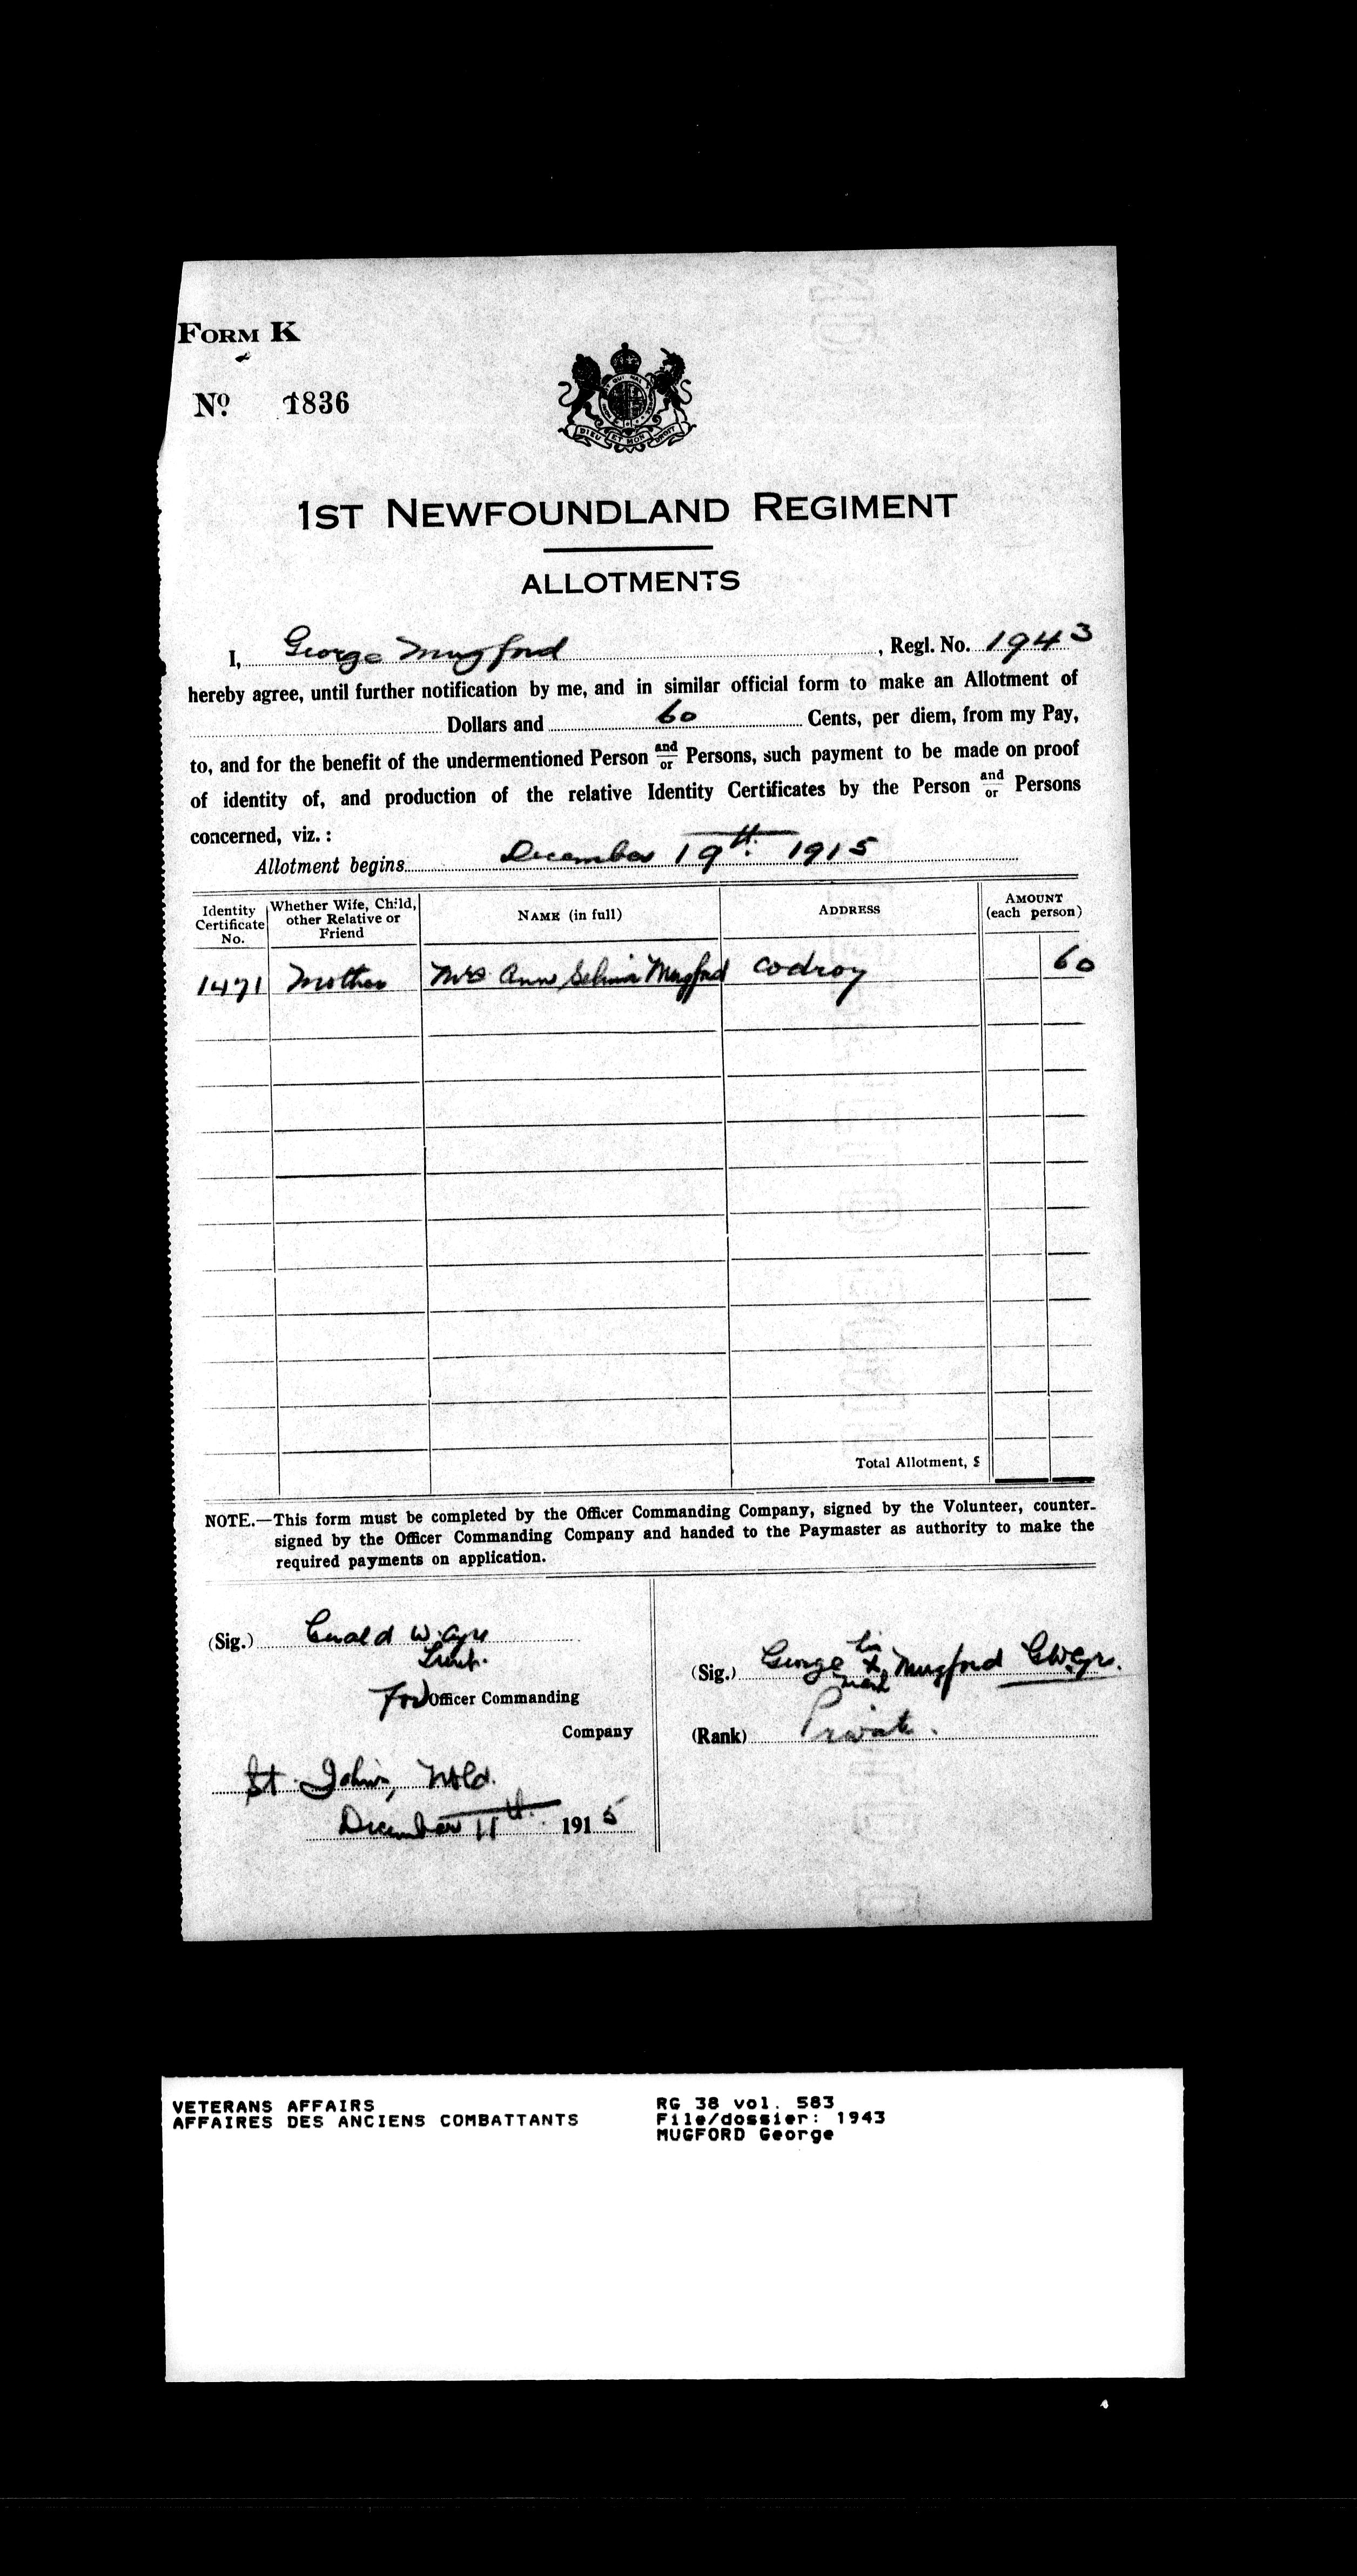 FORM K
No. 1836
DIEU ET MON DROIT
1ST NEWFOUNDLAND REGIMENT
ALLOTMENTS
I, George Mugford, Regl. No. 1943
hereby agree, until further notification by me, and in similar official form to make an Allotment of
Dollars and 60 Cents, per diem, from my Pay,
to, and for the benefit of the undermentioned Person and/or Persons, such payment to be made on proof
of identity of, and production of the relative Identity Certificates by the Person and/or Persons
concerned, viz.:
Allotment begins December 19th 1915
Identity Certificate No. Whether Wife, Child, other Relative or Friend NAME (in full) ADDRESS AMOUNT (each person)
1471 Mother Mrs Ann Selina Mugford Codroy 60
Total Allotment, $
NOTE.—This form must be completed by the Officer Commanding Company, signed by the Volunteer, counter-
signed by the Officer Commanding Company and handed to the Paymaster as authority to make the
required payments on application.
(Sig.) Gerald W. Ayre
Lieut.
For Officer Commanding
Company
St. John's, Nfld.
December 11th 1915
(Sig.) George his X mark Mugford GWAyre.
(Rank) Private.
VETERANS AFFAIRS
AFFAIRES DES ANCIENS COMBATTANTS
RG 38 vol. 583
File/dossier: 1943
MUGFORD George